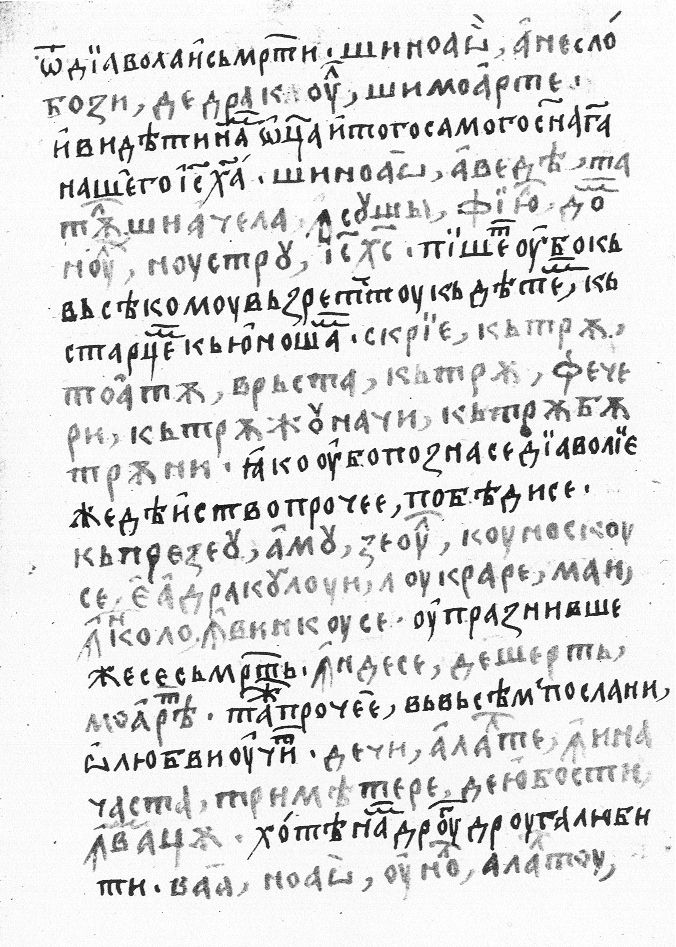 ѿ дїавола и҆ съмрт̑и · ши ноаѡ̀, а҆не сло́
бози, де дракꙋ оу҆̑л, ши моа҆рте ·
и҆ видѣти на̑м ѡ҆ц҃а и҆ того самого сн҃а га҃
нашего і҆с҃ х҃а́ · ши ноаѡ̀, а҆ ведѣ, та
тѫ̑л ши на́чела, ꙟсꙋшы, фїю҆̑л, до̑м
ноу҆̑л, ностру, і҆с҃ х҃с · пїше̑т оу҆бо къ
въсѣкомоу възрет̑тоу къ дѣте̑м, къ
старце̑м къ ю҆ноша̑м · скрїе, кътрѫ,
тоа҆тѫ, врьста, кътрѫ, фече
ри, кътрѫ жꙋначи, кътрѫ бѫ
трѫни · ꙗ҆ко оу҆бо позна се дїаволїе
же дѣи҆ство прочее, побѣди се ·
къ презеꙋ, а҆мꙋ, зеоу҆̑л, коуноскоу
се, є҆ а҆ дракꙋлоуи, лоукраре, маи,
ꙟ҆коло, ꙟ҆винкоусе · оу҆празнивше
же се съмрт̑ь · ꙟ҆н десе, дешерть,
моа҆р̑тѣ · та̑ж прочее, въ въсѣм посланіи,
ѡ҆ любви оу҆чи̑т · дечи, а҆ла̑лте, ꙟ҆ина
часта, тримѣтере, де ю҆бости,
ꙟ҆ваца̑ѫ · хо́тѣ на̑м дро̑г дроуга люби
ти · ваа̑, ноаѡ̀, оу҆но̑л, а҆ла̑лтоу,